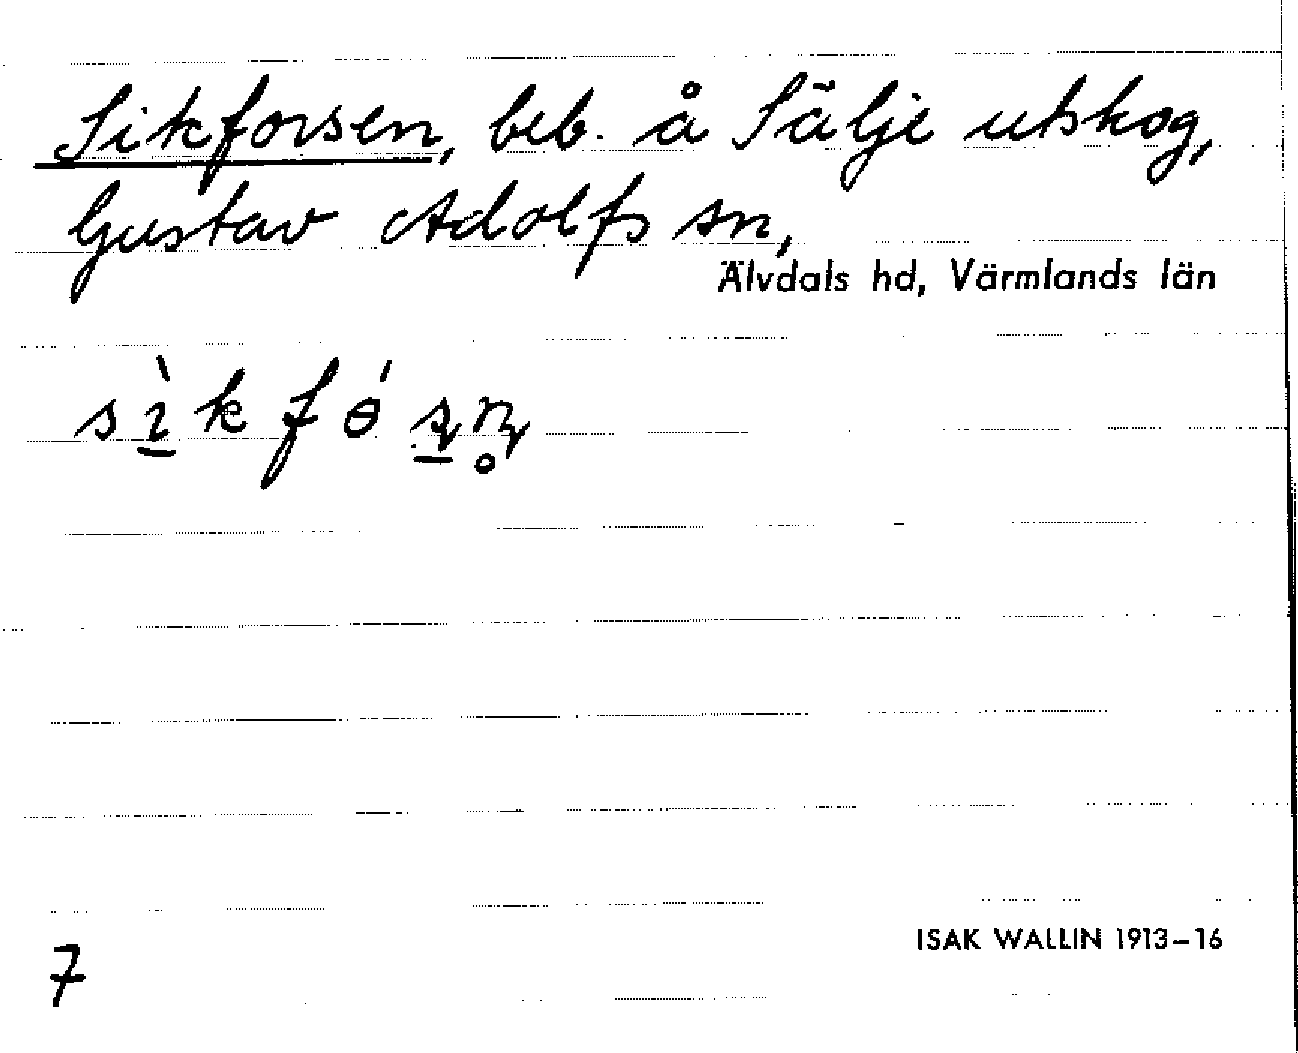 Sikforsen, beb. å Sälje utskog,
Gustav Adolfs sn,
Älvdals hd, Värmlands län
s̀ı̲kfɵ́ʂ̲ɳ̥
7
ISAK WALLIN 1913–16